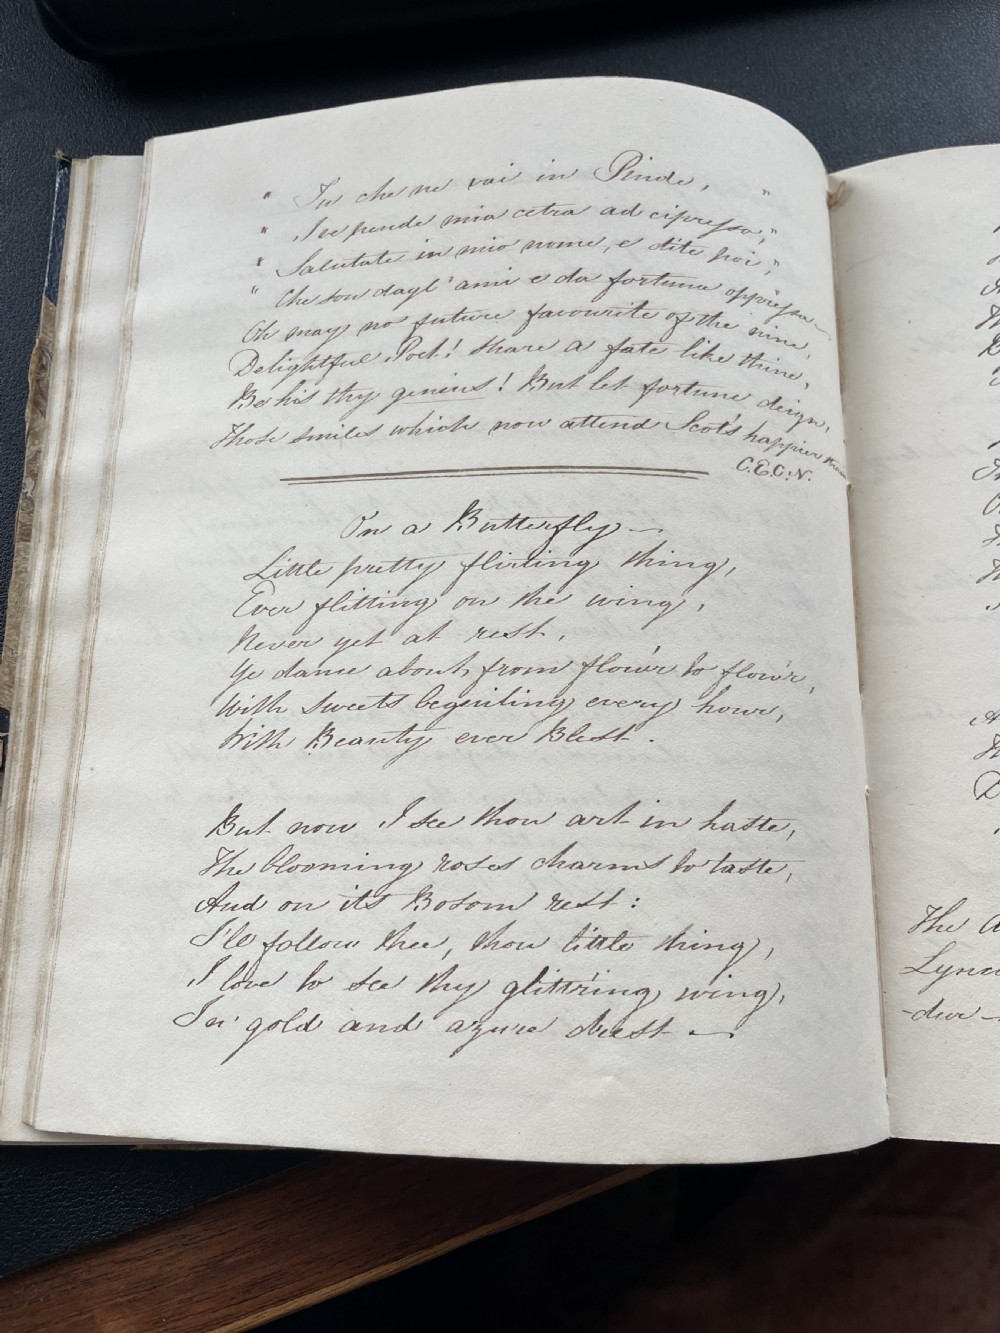 " Tu che ne vai in Pindo, "
" Ive pende mia cetra ad cipressa, "
" Salutate in mio nome, e dite poi, "
" Che son dagl' ami e da fortuna oppressa —
Oh may no future favourite of the nine,
Delightful Poet! share a fate like thine,
Be his thy genius! But let fortune deign,
Those smiles which now attend Scot's happier
C.E.C.N.
On a Butterfly —
Little pretty flirting thing,
Ever flitting on the wing,
Never yet at rest,
Ye dance about from flow'r to flow'r,
With sweets beguiling every hour,
With Beauty ever Blest.
But now I see thou art in haste,
The blooming roses charms to taste,
And on its Bosom rest:
I'll follow thee, thou little thing,
I love to see thy glitt'ring wing,
In gold and azure drest —
The
-dur —